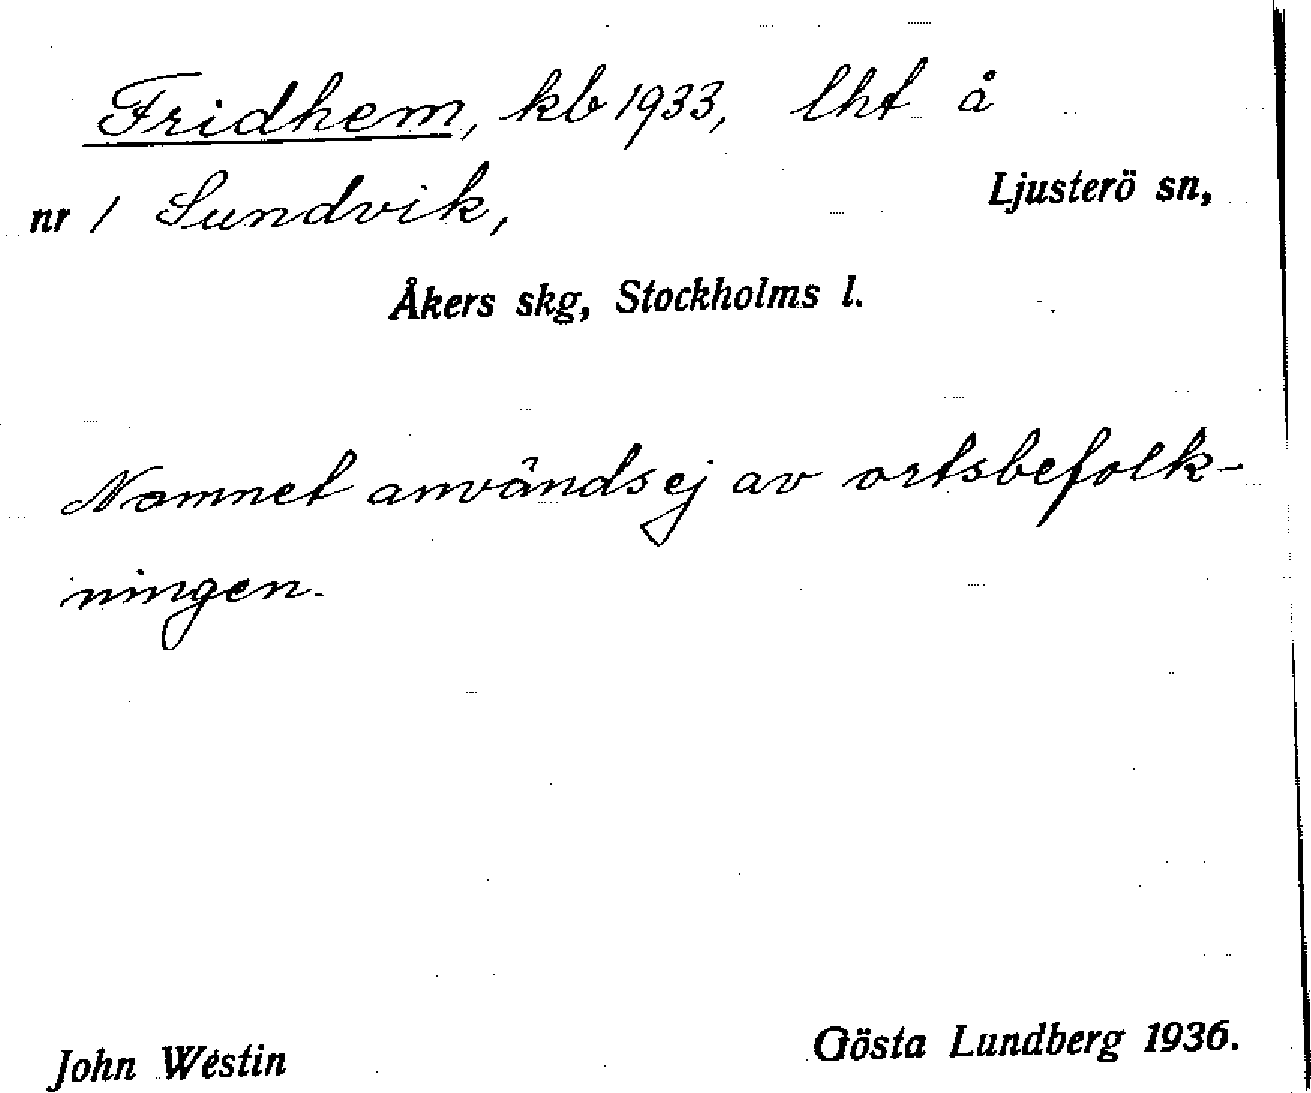 Fridhem, kb 1933, lht å
nr 1 Sundvik, Ljusterö sn,
Åkers skg, Stockholms l.
Namnet användes ej av ortsbefolk-
ningen.
John Westin Gösta Lundberg 1936.